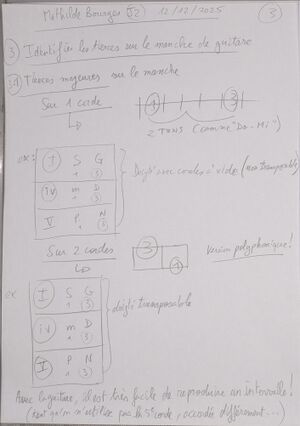 Mathilde Bourges 12/12/2025 3
3 Identifier les tierces sur le manche de guitare
3.1 Tierces majeures sur le manche
Sur 1 corde
1 3
2 TONS (comme "Do-Mi")
ex: I S G
1 3
Doigté avec cordes à vide (non transposable)
IV m D
1 3
V P N
1 3
Sur 2 cordes
3
1
Version polyphonique !
ex I S G
1 3
doigté transposable
IV m D
1 3
I P N
1 3
Avec la guitare, il est très facile de reproduire un intervalle !
(tant qu'on n'utilise pas la 5e corde, accordée différemment...)